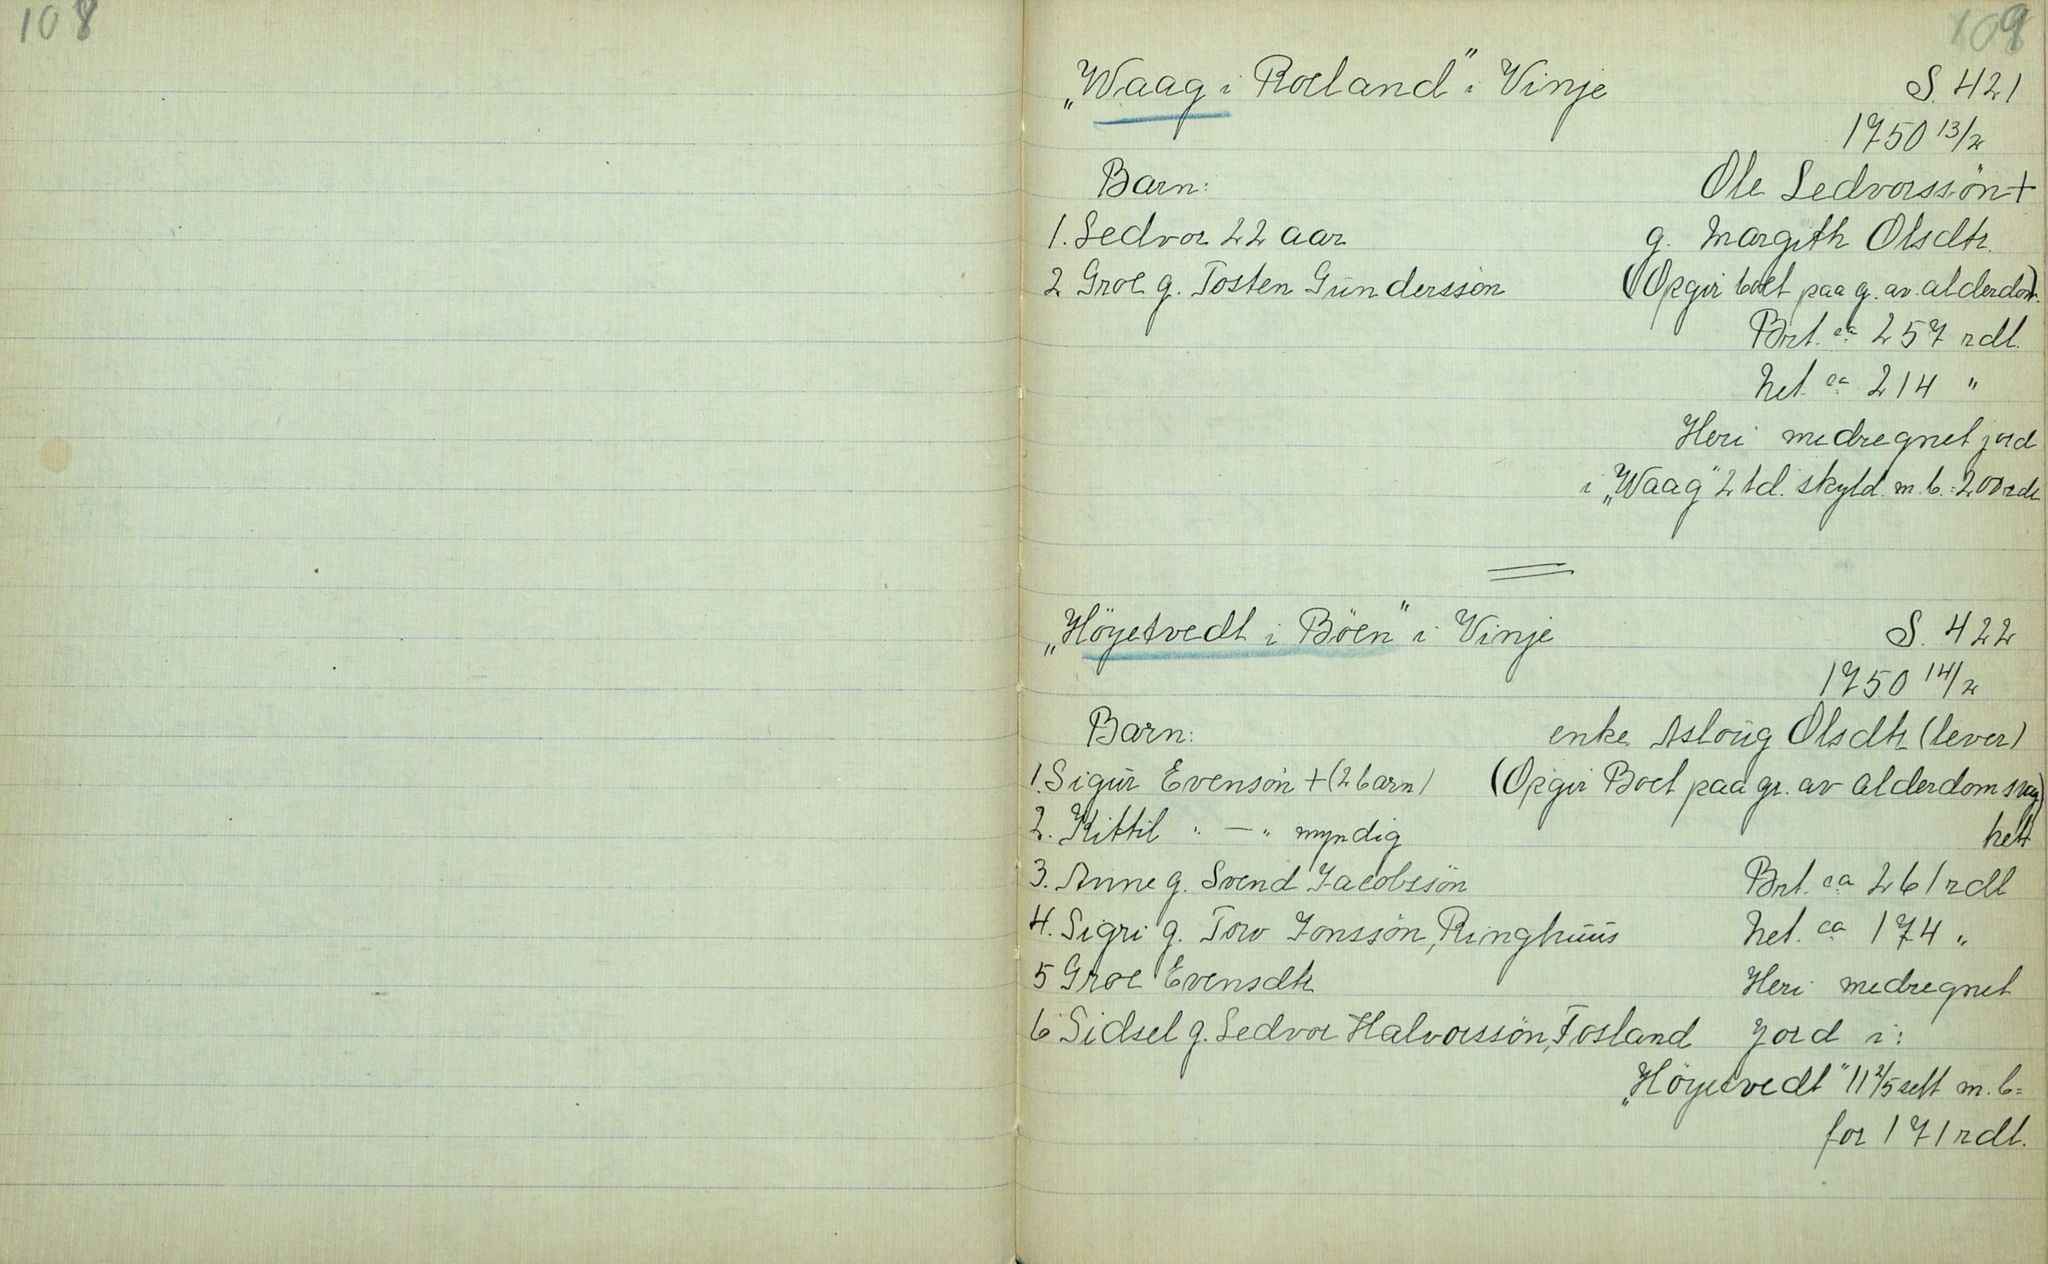 108
109
„Waag i Roeland" i Vinje S. 421
1750 13/2
Barn: Ole Ledvorssön +
1. Ledvor 22 aar g. Margith Olsdtr.
2 Groe g. Tosten Gunderssön (Opgir boet paa g. av alderdom.)
Brt. ca 257 rdl.
Net. ca 214 "
Heri medregnet jord
i „Waag" 2 td. skyld. m. b. = 200 rdl
„Höyetvedt i Böen" i Vinje S. 422
1750 14/2
Barn: enke Asloug Olsdtr (lever)
1. Sigur Evensön + (2 barn) (Opgir Boet paa gr. av alderdomsvag)
2. Kittil " — " myndig het
3. Anne g. Svend Jacobssön Brt. ca 261 rdl
4. Sigri g. Tov Jonssön, Ringhuus Net. ca 174 "
5 Groe Evensdtr Heri medregnet
6 Sidsel g. Ledvor Halvorssön, Fosland Jord i:
„Höyetvedt" 11 2/5 sett m. b =
for 171 rdl.